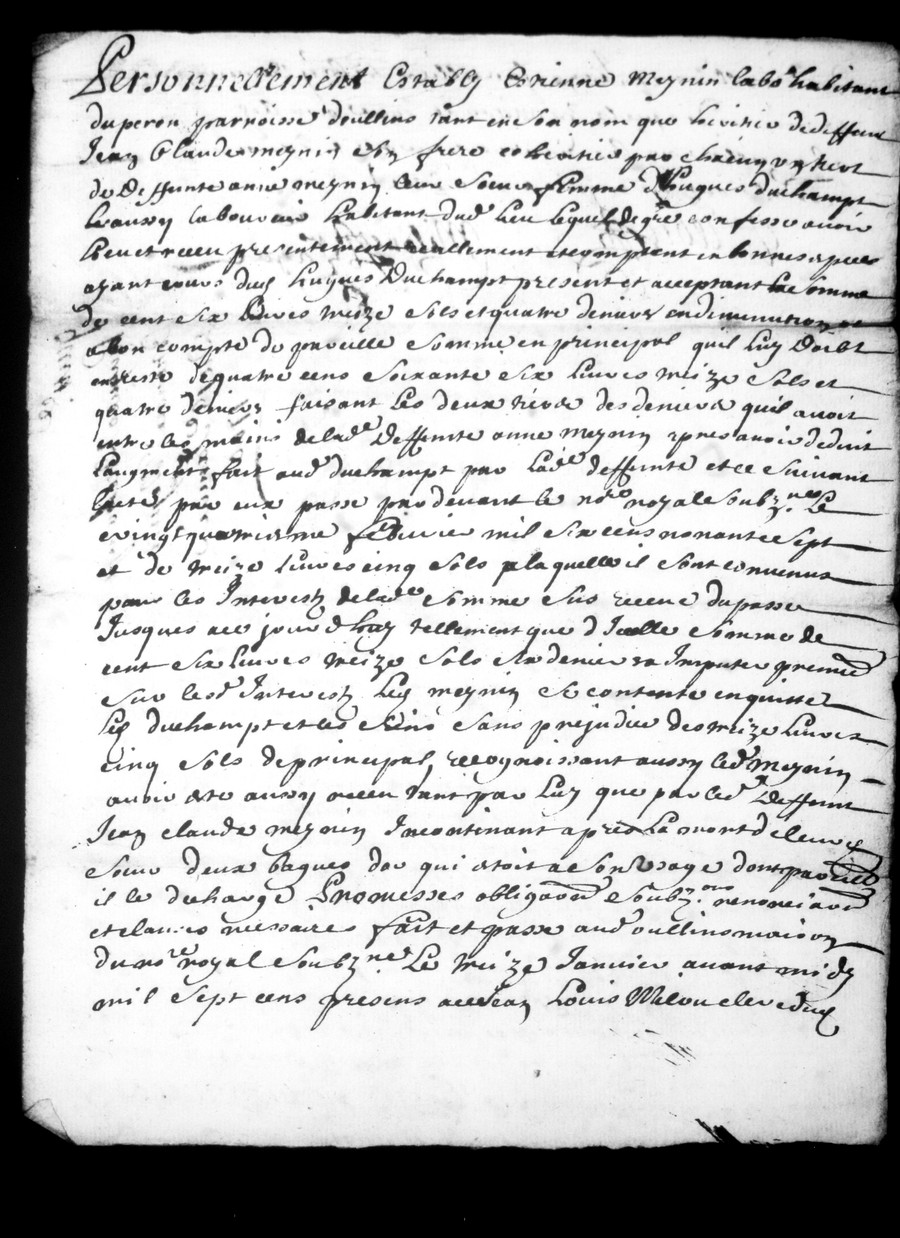 Personnellement Estably Estienne Meynin labor habitant
du peron parroisse doullins tant en son nom que heritier de deffunt
Jean Claude meynin son frere coheritier par chacun un tiert
de deffunte anne meynin leur soeur femme d'hugues duchampt
laboureur habitant dud lieu lequel de gre confesse avoir
heu et receu presentement reallement et comptent en bonnes especes
ayant cours dud hugues Duchampt present et acceptant la somme
de cent six livres treize sols et quatre deniers en diminution et
a bon compte de pareille somme en principal quil luy doibt
en reste de quatre cens soixante six livres treize sols et
quatre deniers faisant les deux tiers des deniers quil avoit
entre les mains de lade deffunte anne meynin apres avoir deduit
laugment fait aud duchampt par lade deffunte et ce suivant
par eux passe par devant le nore royal soubzne Le
vingt quatriesme febvrier mil six cens nonante sept
et de treize livres cinq sols a laquelle il sont convenus
pour les Interest de lade somme sus receue du passe
Jusques a ce jourdhuy tellement que d'Icelle somme de
cent six livres treize sols six deniers en Imputer premier
sur lesd Interest led meynin se contente en quitte
led duchampt et les siens sans prejudice des treize livres
cinq sols de principal, recognoissant aussy led meynin
avoir este aussy receu tant par luy que par led deffunt
Jean claude meynin Incontinant apres la mort de leur
soeur deux bagues dor qui etoit a son usage dont
il le decharge Promesses obligaon soubzons renonciaon
et clauses necessaires fait et passe aud oullins maison
du nore royal soubzne Le treize Janvier avant midy
mil sept cens presens a ce Jean Louis clerc dud